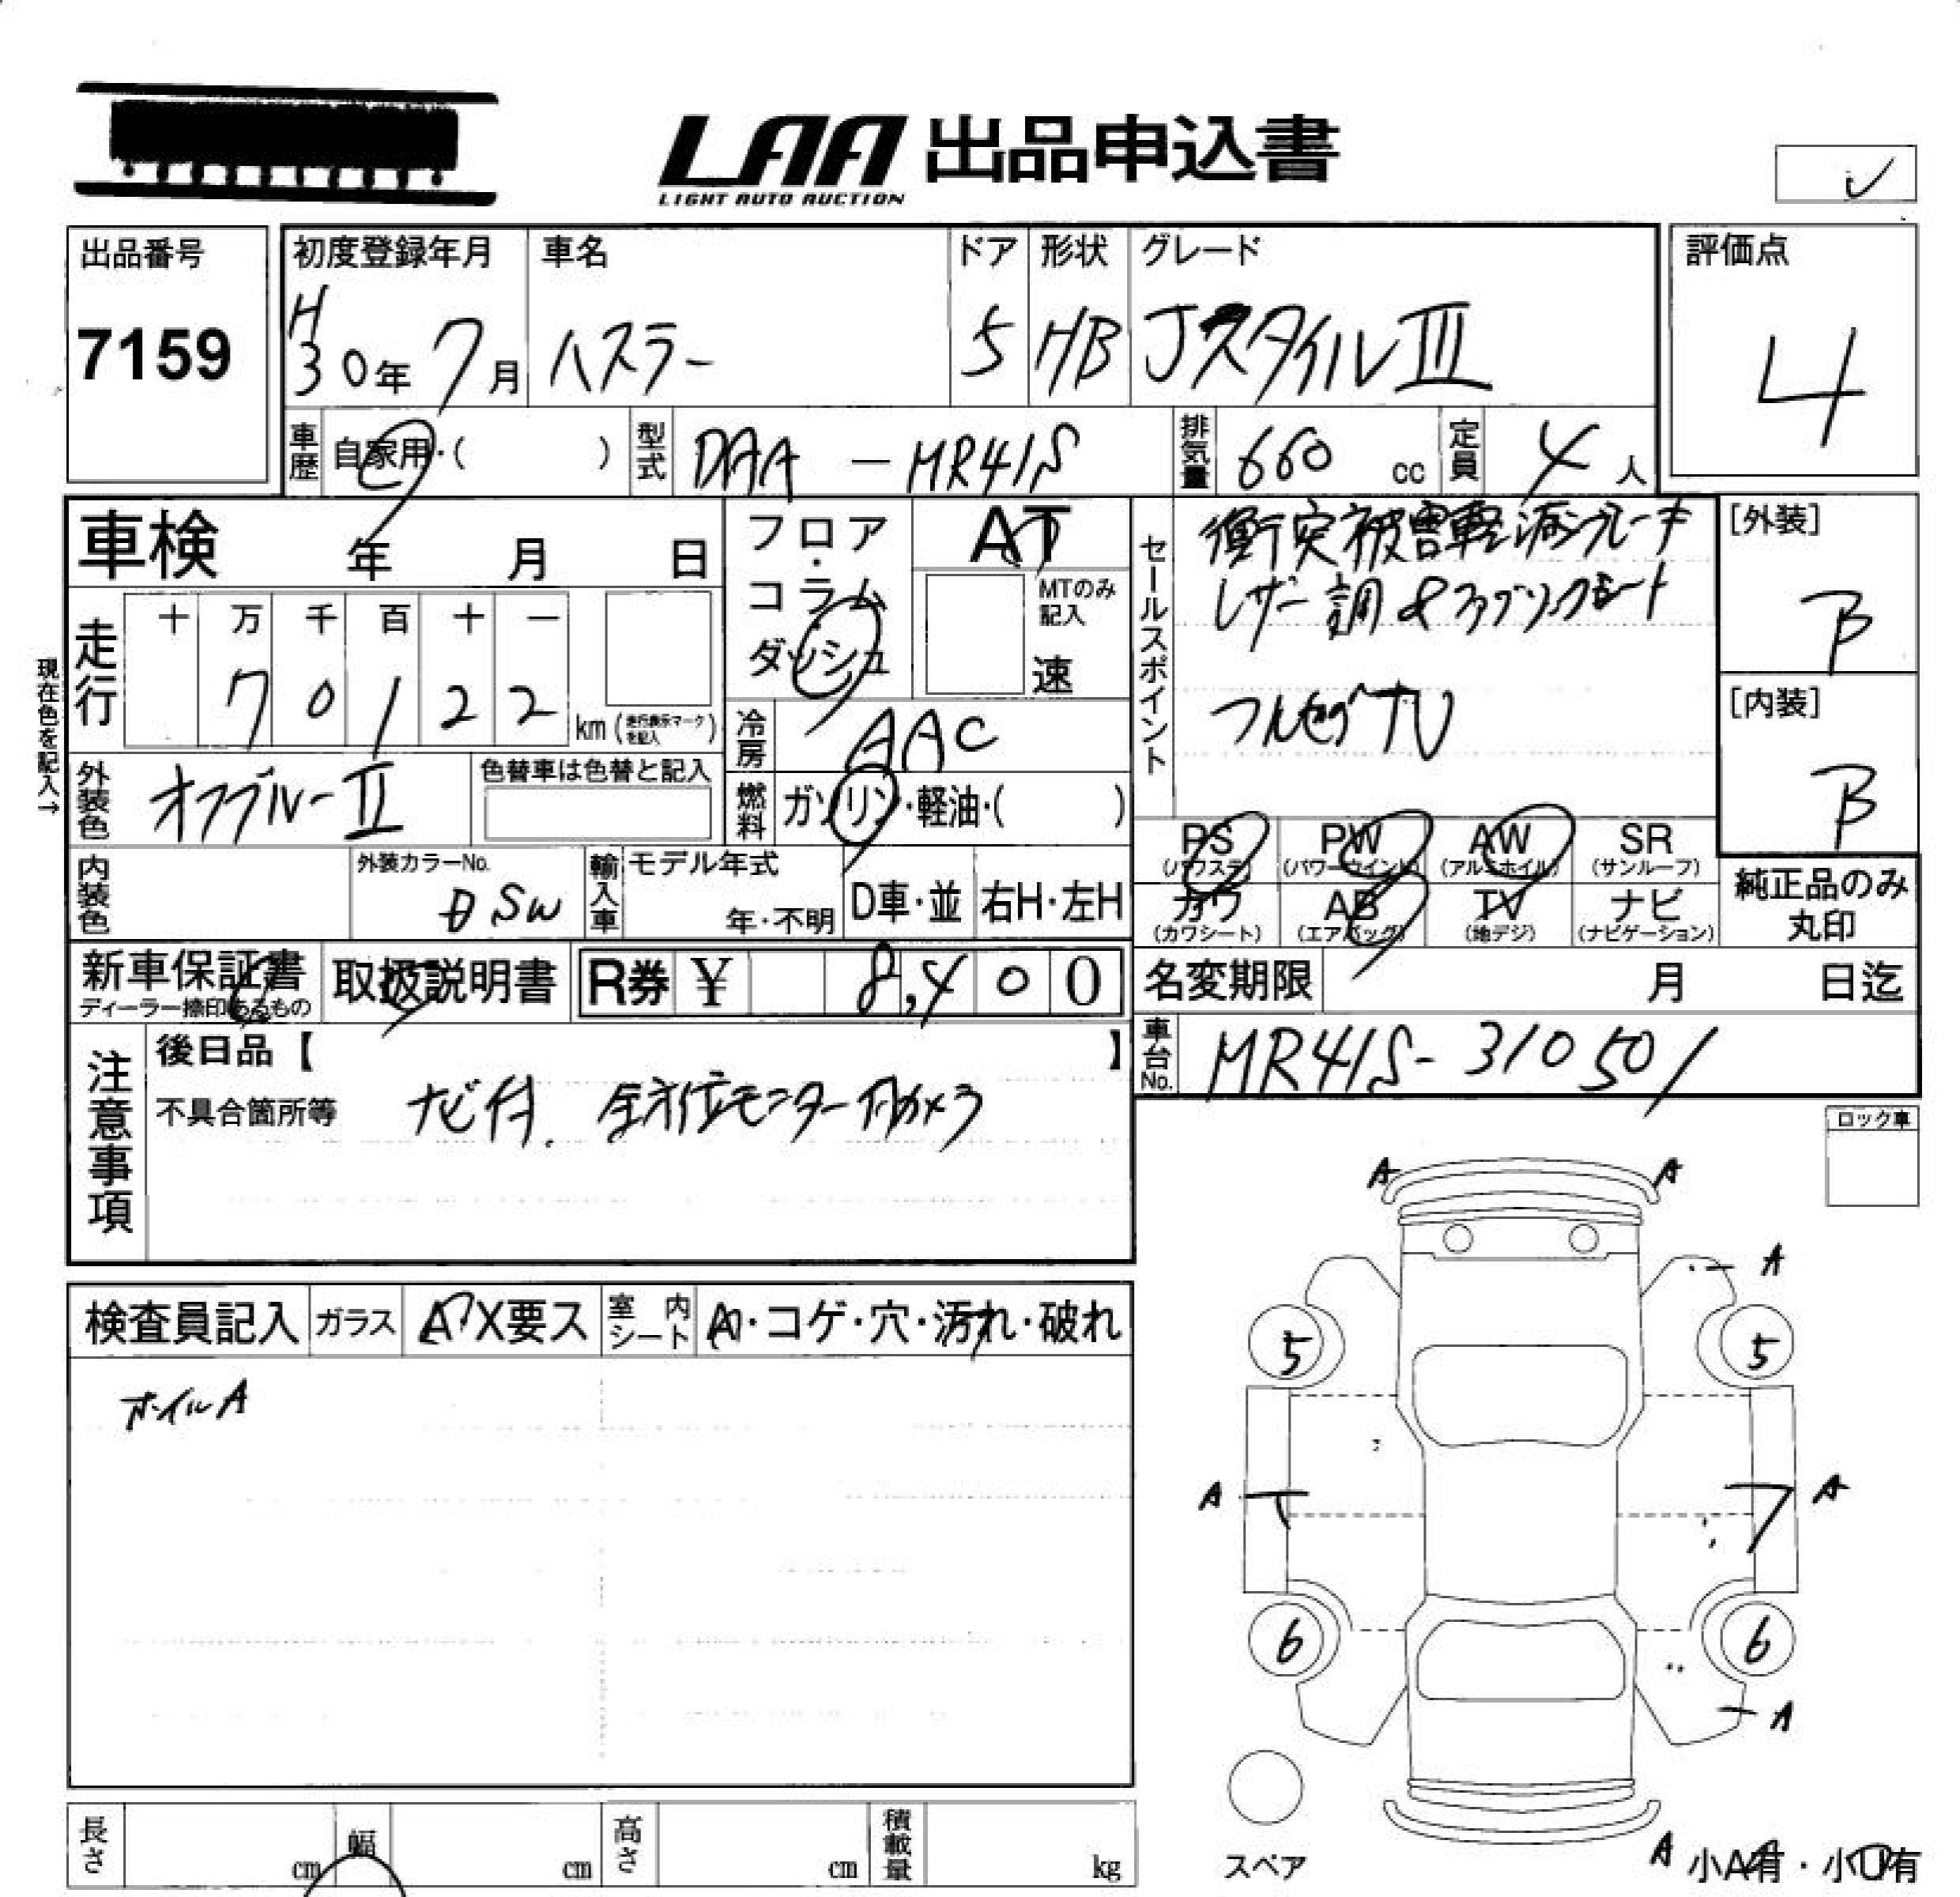 LAA 出品申込書
LIGHT AUTO AUCTION
出品番号
7159
初度登録年月
H30年 7月
車名
ハスラー
ドア
5
形状
HB
グレード
JスタイルIII
評価点
4
車歴
自家用・( )
型式
DAA - MR41S
排気量
660 cc
定員
4 人
車検 年 月 日
走行
十 万 千 百 十 一
7 0 1 2 2
km (走行表示マークを記入)
現在色を記入→
フロア・コラム
ダッシュ
AT
MTのみ記入
速
冷房
AAC
燃料
ガソリン・軽油・( )
外装色
オフブルーII
色替車は色替と記入
内装色
外装カラーNo.
ZSW
輸入車
モデル年式
年・不明
D車・並
右H・左H
セールスポイント
衝突被害軽減ブレーキ
レザー調&ファブリックシート
フルセグナビ
[外装]
B
[内装]
B
PS (パワステ)
PW (パワーウインド)
AW (アルミホイル)
SR (サンルーフ)
カワ (カワシート)
AB (エアバッグ)
TV (地デジ)
ナビ (ナビゲーション)
純正品のみ丸印
新車保証書
ディーラー捺印あるもの
取扱説明書
R券 ¥ 8,400
名変期限 月 日迄
車台No.
MR41S-310501
注意事項
後日品【 】
不具合箇所等
ナビ付. 全方位モニター用カメラ
ロック車
検査員記入
ガラス
A・X要ス
室内シート
A・コゲ・穴・汚れ・破れ
ホイルA
A A
A
5 5
A A
6 6
A
スペア
A 小A有・小U有
長さ cm
幅 cm
高さ cm
積載量 kg